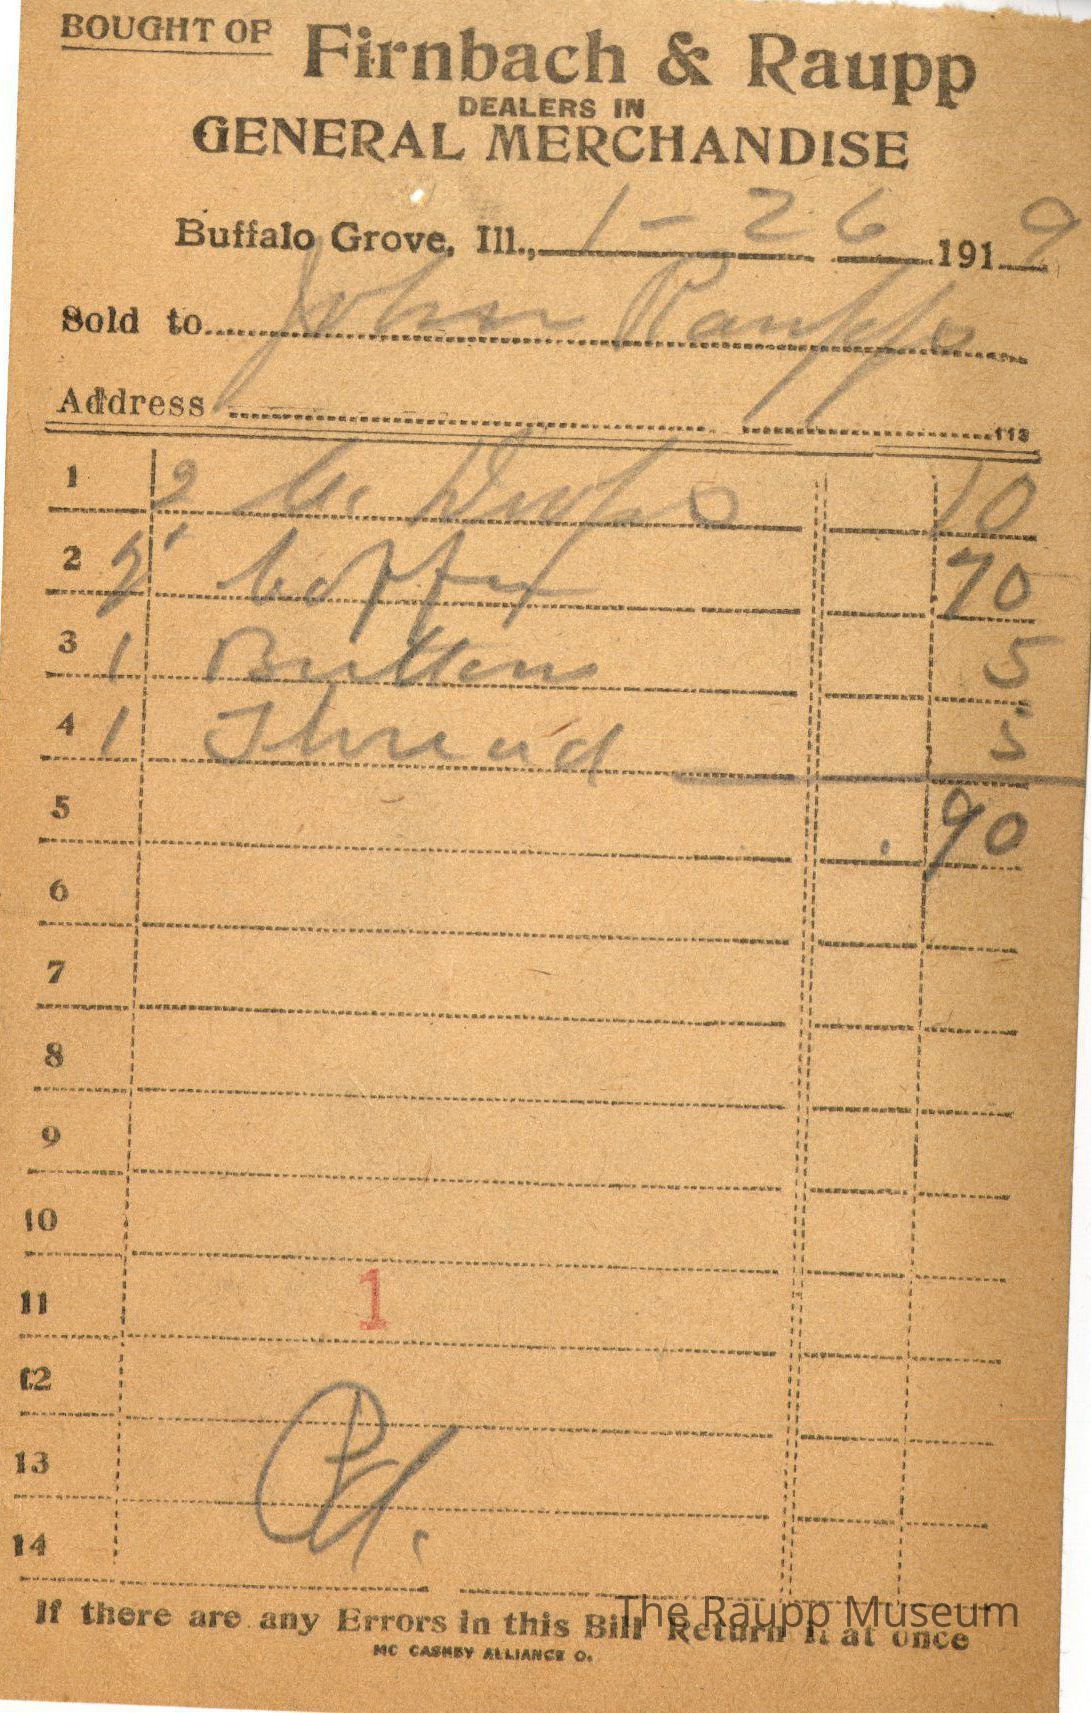 BOUGHT OF Firnbach & Raupp
DEALERS IN
GENERAL MERCHANDISE
Buffalo Grove, Ill., 1-26 1919
Sold to John Raupp
Address
113
1 2 Drops 10
2 2' Coffee 70
3 1 Button 5
4 1 Thread 5
5 .90
6
7
8
9
10
11 1
12
13
14
If there are any Errors in this Bill Return it at once
The Raupp Museum
MC CASKEY ALLIANCE O.